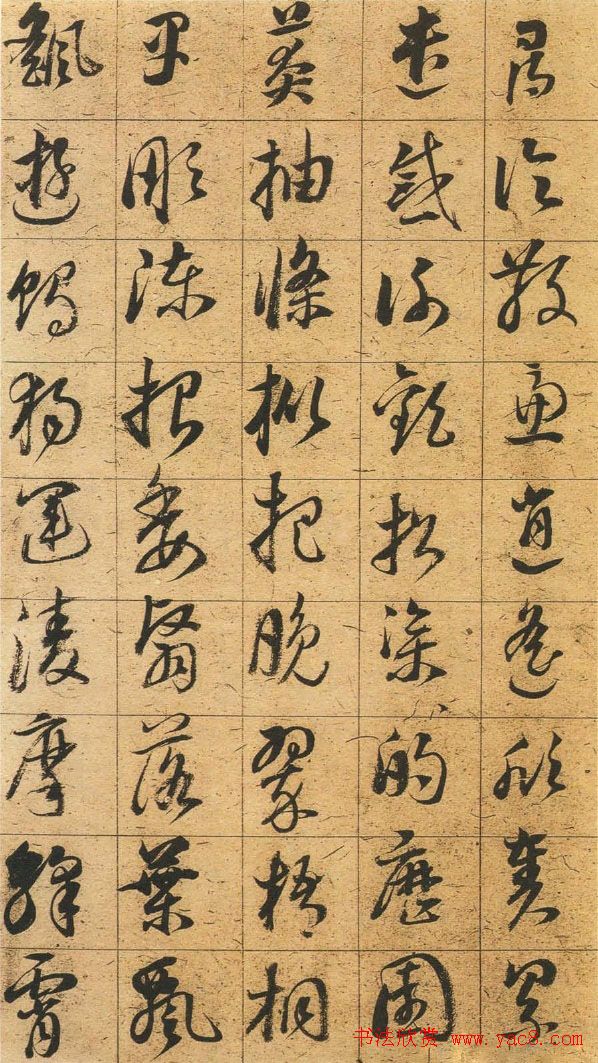 尋論散慮逍遙欣奏累
遣慼謝歡招渠的歷園
莽抽條枇杷晚翠梧桐
早彫陳根委翳落葉飄
颻遊鵾獨運淩摩絳霄
书法欣赏 www.yac8.com